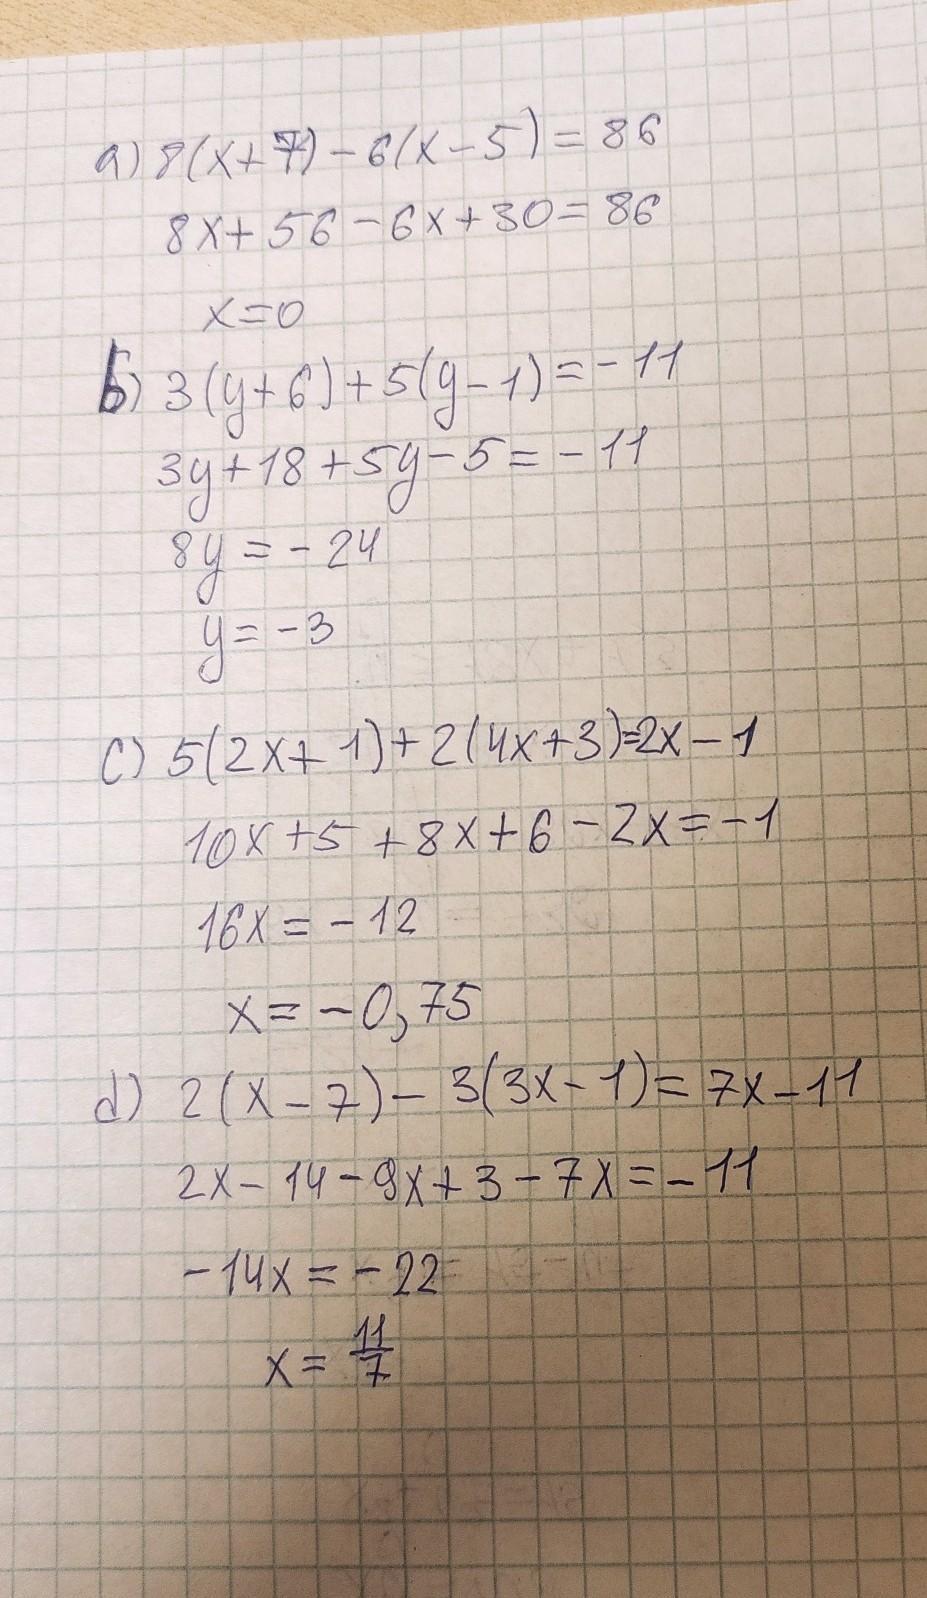 a) 8(x+7)-6(x-5)=86
8x+56-6x+30=86
x=0
b) 3(y+6)+5(y-1)=-11
3y+18+5y-5=-11
8y=-24
y=-3
c) 5(2x+1)+2(4x+3)=2x-1
10x+5+8x+6-2x=-1
16x=-12
x=-0,75
d) 2(x-7)-3(3x-1)=7x-11
2x-14-9x+3-7x=-11
-14x=-22
x=11/7